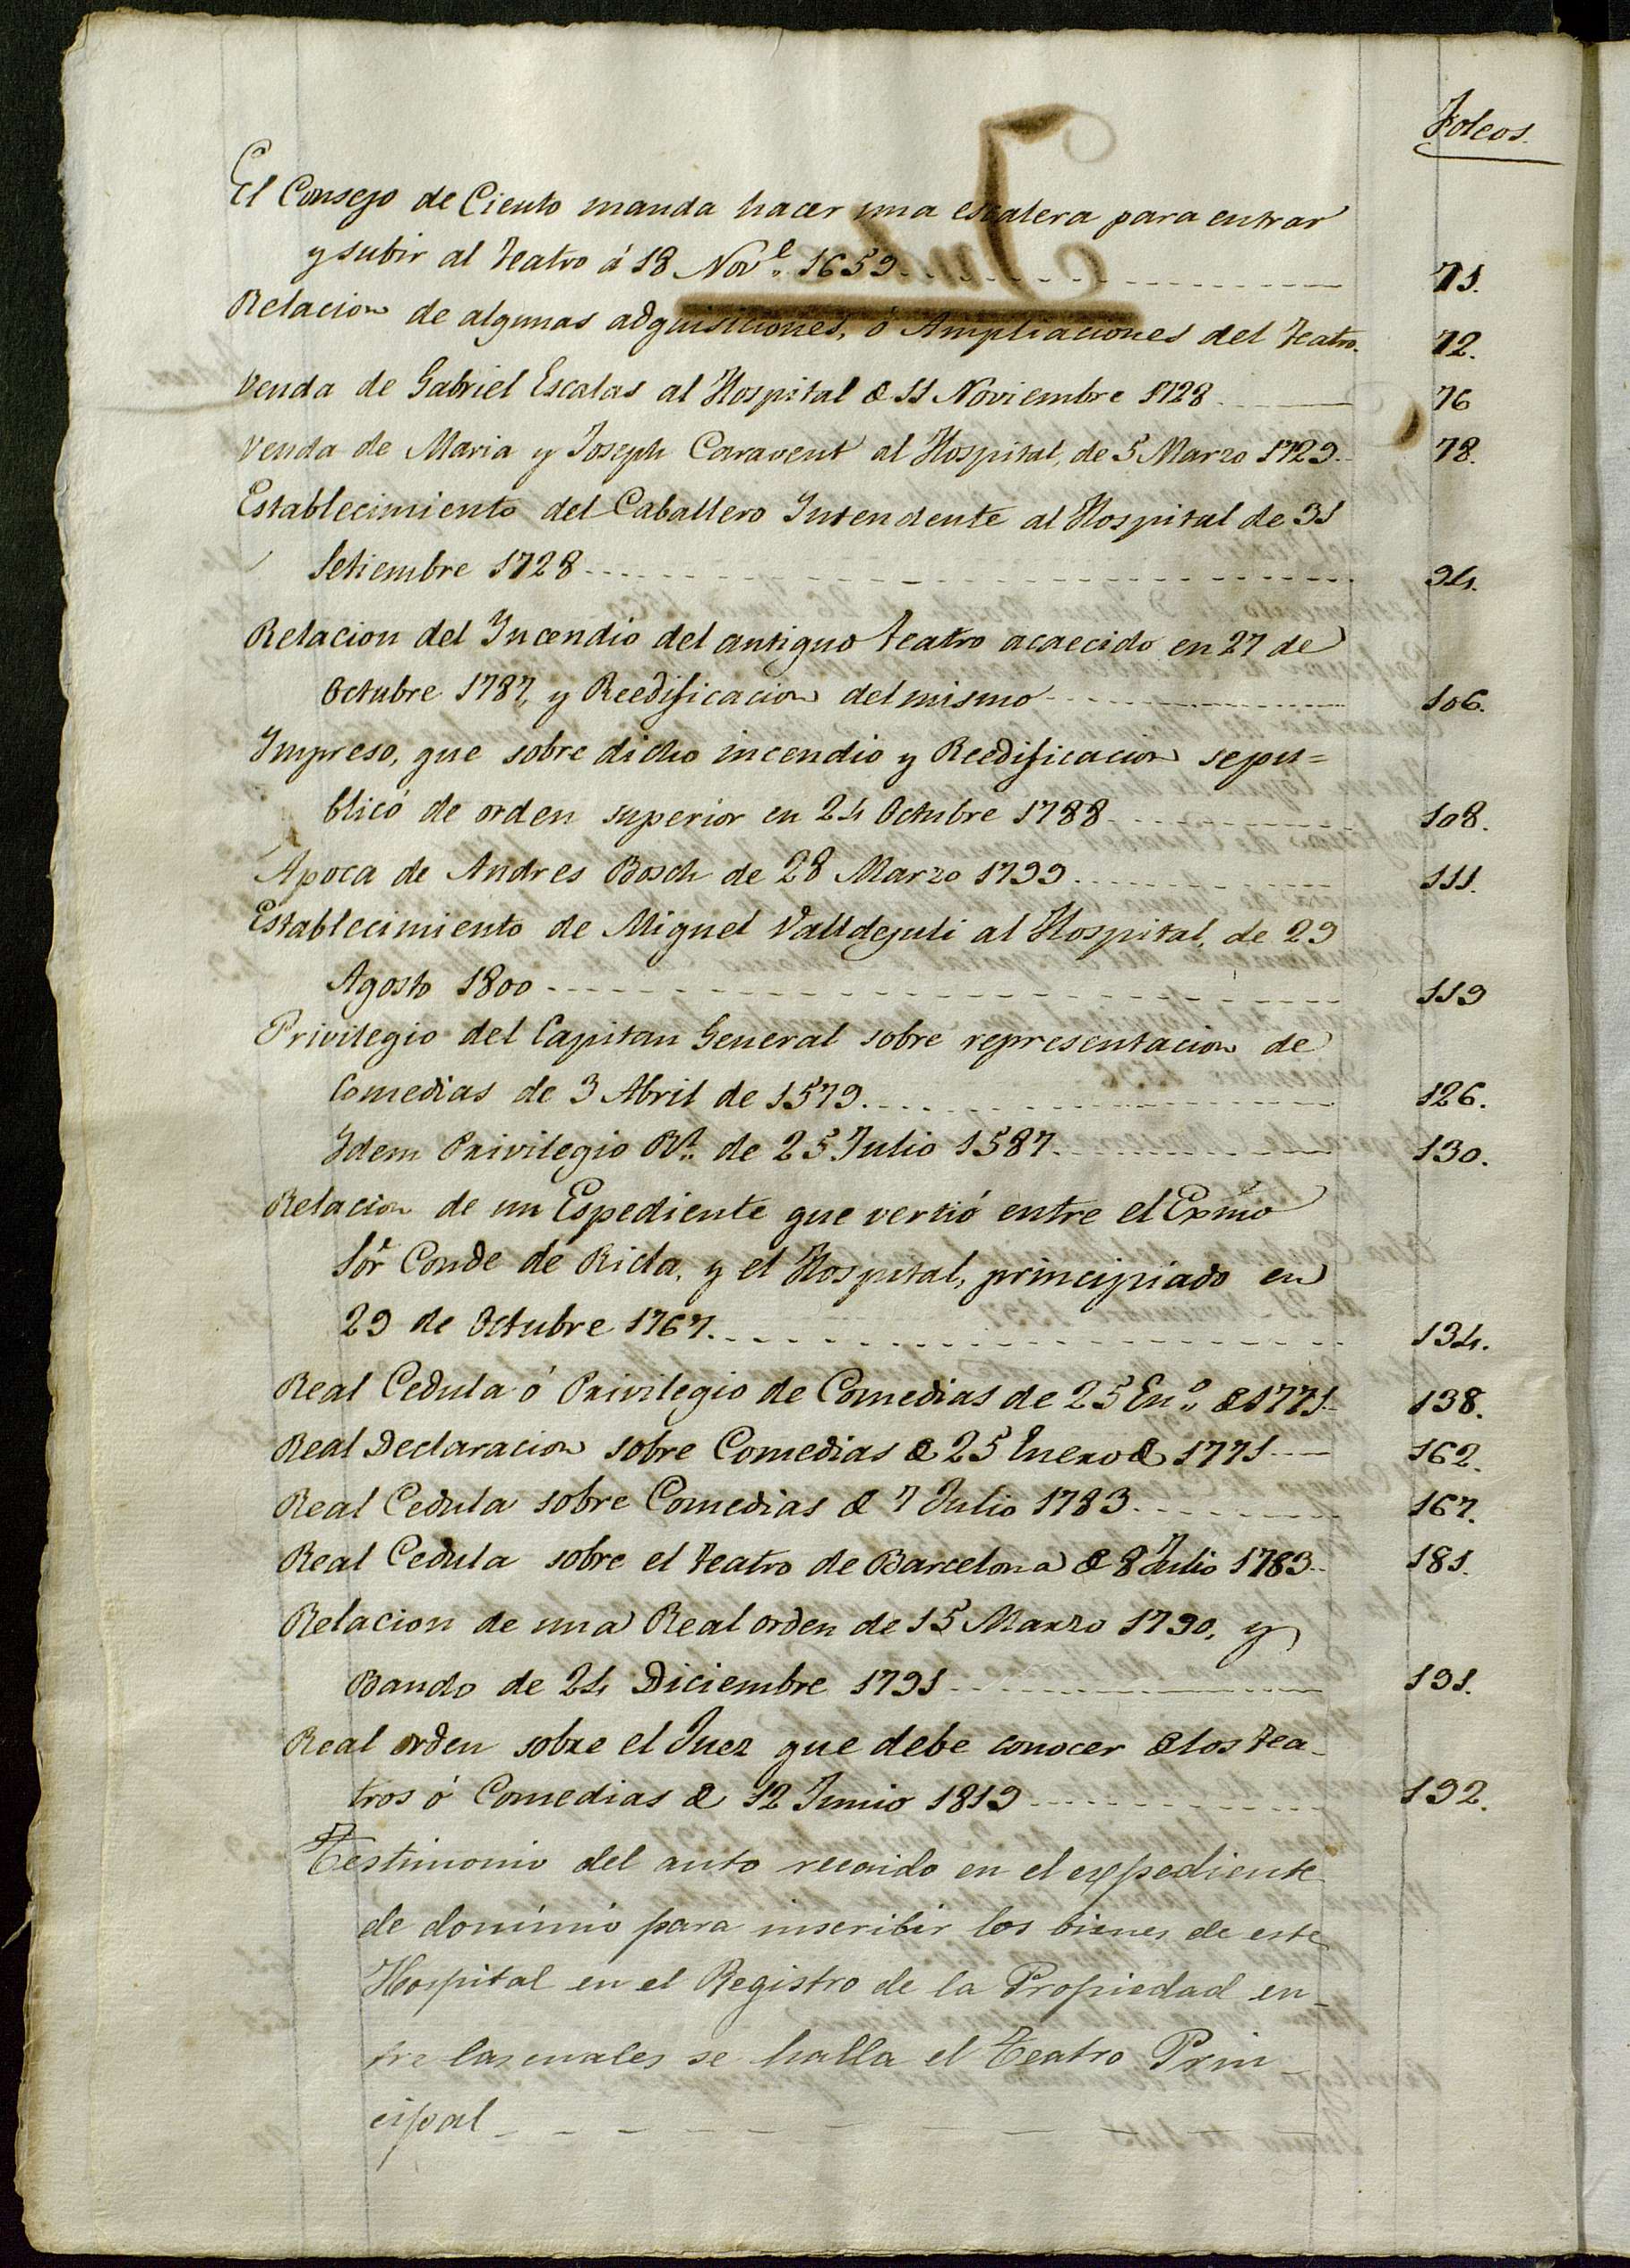 Foleos.
El Consejo de Ciento manda hacer una escalera para entrar
y subir al teatro á 18 Nove. 1659 71.
Relacion de algunas adquisiciones, ó Ampliaciones del teatro. 72.
Venda de Gabriel Escalas al Hospital de 11 Noviembre 1728 76
Venda de Maria y Joseph Caravent al Hospital, de 5 Marzo 1729. 78.
Establecimiento del Caballero Intendente al Hospital de 31
Setiembre 1728 94.
Relacion del Incendio del antiguo teatro acaecido en 27 de
Octubre 1787, y Reedificacion del mismo 106.
Impreso, que sobre dicho incendio y Reedificacion se pu=
blicó de orden superior en 24 Octubre 1788 108.
Apoca de Andres Bosch de 28 Marzo 1799 111.
Establecimiento de Miguel Valldejuli al Hospital, de 29
Agosto 1800 119
Privilegio del Capitan General sobre representacion de
Comedias de 3 Abril de 1579. 126.
Idem Privilegio Rl. de 25 Julio 1587. 130.
Relacion de un Espediente que versió entre el Exmo
Sor Conde de Ricla, y el Hospital, principiado en
29 de Octubre 1767. 134.
Real Cedula ó Privilegio de Comedias de 25 Eno. de 1771. 138.
Real Declaracion sobre Comedias de 25 Enero de 1771 162.
Real Cedula sobre Comedias de 7 Julio 1783. 167.
Real Cedula sobre el teatro de Barcelona de 8 Julio 1783. 181.
Relacion de una Real orden de 15 Marzo 1790, y
Bando de 24 Diciembre 1791 191.
Real orden sobre el Juez que debe conocer de los tea-
tros ó Comedias de 12 Junio 1819 192.
Testimonio del auto recaido en el expediente
de dominio para inscribir los bienes de este
Hospital en el Registro de la Propiedad en-
tre las cuales se halla el Teatro Prin-
cipal